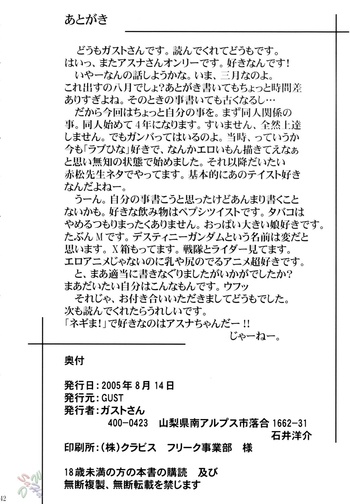 あとがき
どうもガストさんです。読んでくれてどうもです。
はいっ、またアスナさんオンリーです。好きなんです！
いやーなんの話しようかな。いま、三月なのよ。
これ出すの八月でしょ？あとがき書いてもちょっと時間差
ありすぎよね。そのときの事書いても古くなるし…
だから今回はちょっと自分の事を。まず同人関係の
事。同人始めて４年になります。すいません、全然上達し
しません。でもガンバってはいるのよ。当時、っていうか
今も「ラブひな」好きで、なんかエロいもん描きてえなぁ
と思い無知の状態で始めました。それ以降だいたい
赤松先生ネタでやってます。基本的にあのテイスト好き
なんだよねー。
うーん。自分の事書こうと思ったけどあんまり書くこと
ないかも。好きな飲み物はペプシツイストです。タバコは
やめるつもりまったくありません。おっぱい大きい娘好きです。
たぶんＭです。デスティニーガンダムという名前は変だと
思います。Ｘ箱もってます。戦隊とライダー見てます。
エロアニメじゃないのに乳や尻のでるアニメ超好きです。
と、まあ適当に書きなぐりましたがいかがでしたか？
まあだいたい自分はこんなもんです。ウフッ
それじゃ、お付き合いいただきましてどうもでした。
次も読んでくれたらうれしいです。
「ネギま！」で好きなのはアスナちゃんだー！！
じゃーねー。
奥付
発行日：2005年８月１４日
発行元：GUST
発行者：ガストさん
400-0423　山梨県南アルプス市落合 1662-31
石井洋介
印刷所：（株）クラビス　フリーク事業部　様
18歳未満の方の本書の購読　及び
無断複製、無断転載を禁じます
42